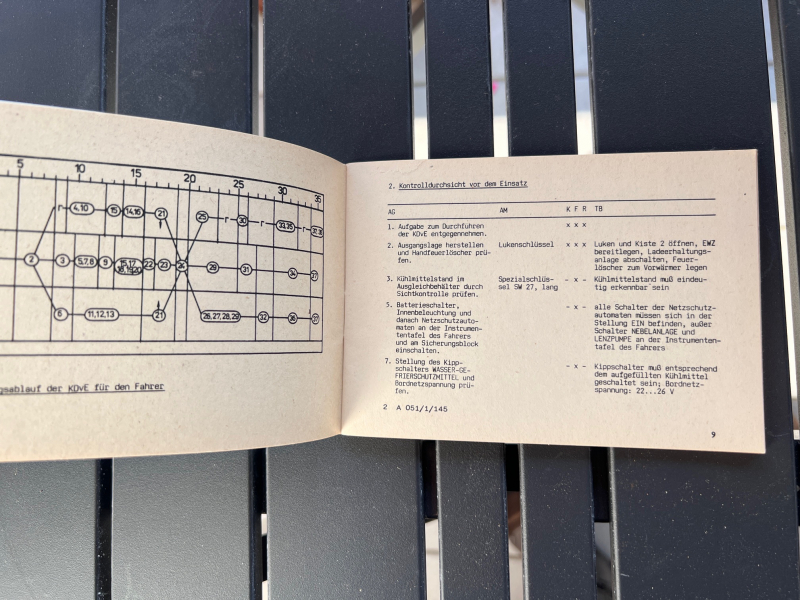 5 10 15 20 25 30 35
r 4,10 15 14,16 21 25 r 30 r 33,35 r
2 3 5,7,8 9 15,17, 22 23 24 29 31 34 37
18,19,20
6 11,12,13 21 26,27,28,29 32 36 37
gsablauf der KDvE für den Fahrer
2. Kontrolldurchsicht vor dem Einsatz
AG AM K F R TB
1. Aufgabe zum Durchführen x x x
der KDvE entgegennehmen.
2. Ausgangslage herstellen Lukenschlüssel x x x Luken und Kiste 2 öffnen, EWZ
und Handfeuerlöscher prü- bereitlegen, Ladeerhaltungs-
fen. anlage abschalten, Feuer-
löscher zum Vorwärmer legen
3. Kühlmittelstand im Spezialschlüs- - x - Kühlmittelstand muß eindeu-
Ausgleichbehälter durch sel SW 27, lang tig erkennbar sein
Sichtkontrolle prüfen.
5. Batterieschalter, - x - alle Schalter der Netzschutz-
Innenbeleuchtung und automaten müssen sich in der
danach Netzschutzauto- Stellung EIN befinden, außer
maten an der Instrumen- Schalter NEBELANLAGE und
tentafel des Fahrers LENZPUMPE an der Instrumenten-
und am Sicherungsblock tafel des Fahrers
einschalten.
7. Stellung des Kipp- - x - Kippschalter muß entsprechend
schalters WASSER-GE- dem aufgefüllten Kühlmittel
FRIERSCHUTZMITTEL und geschaltet sein; Bordnetz-
Bordnetzspannung prü- spannung: 22...26 V
fen.
2 A 051/1/145
9